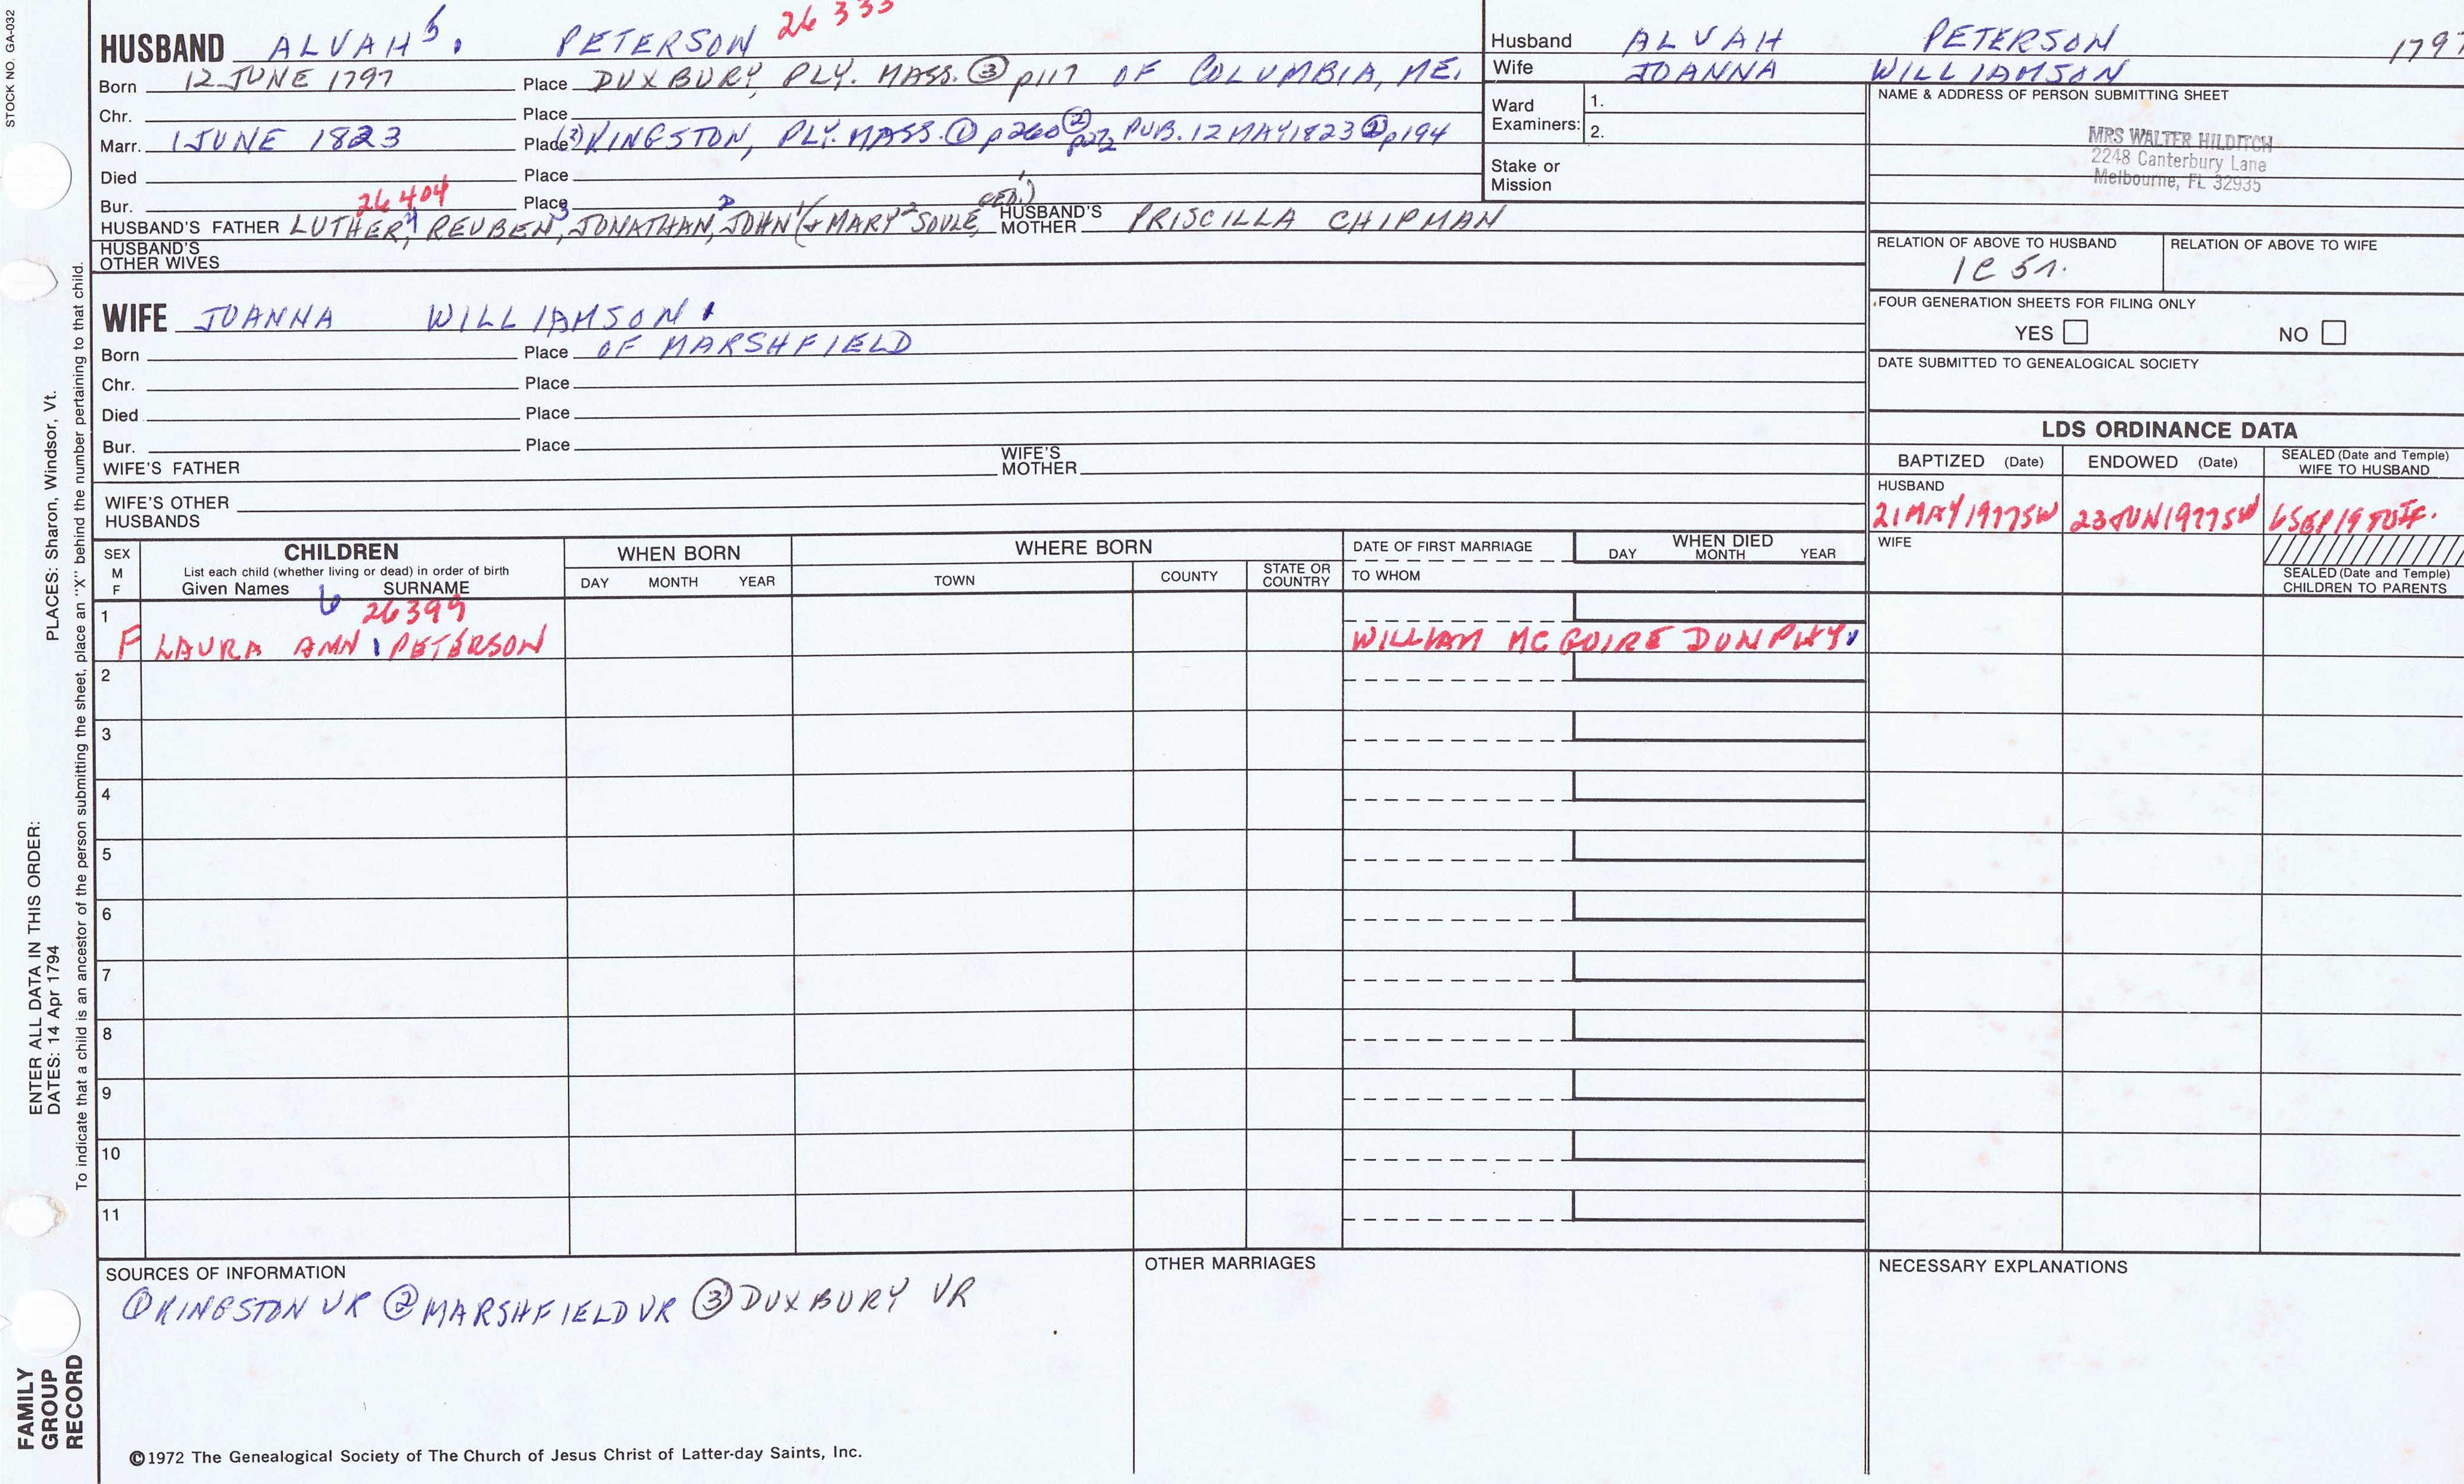 STOCK NO. GA-032
HUSBAND ALVAH 5. PETERSON 26 333
Born 12 JUNE 1797 Place DUXBURY, PLY. MASS. ③ p117 OF COLUMBIA, ME.
Chr. Place
Marr. 1 JUNE 1823 Place (3) KINGSTON, PLY. MASS. ① p260 ② PUB. 12 MAY 1823 ① p194
Died Place
Bur. Place
26 404
HUSBAND'S FATHER LUTHER,4 REUBEN,3 JONATHAN,2 JOHN1 (+ MARY2 SOULE, GEO.1) HUSBAND'S MOTHER PRISCILLA CHIPMAN
HUSBAND'S OTHER WIVES
WIFE JOANNA WILLIAMSON
Born Place OF MARSHFIELD
Chr. Place
Died Place
Bur. Place
WIFE'S FATHER WIFE'S MOTHER
WIFE'S OTHER HUSBANDS
Husband ALVAH PETERSON 1797
Wife JOANNA WILLIAMSON
Ward Examiners: 1.
2.
Stake or Mission
NAME & ADDRESS OF PERSON SUBMITTING SHEET
MRS WALTER HILDITCH
2248 Canterbury Lane
Melbourne, FL 32935
RELATION OF ABOVE TO HUSBAND RELATION OF ABOVE TO WIFE
1C 5r.
FOUR GENERATION SHEETS FOR FILING ONLY
YES NO
DATE SUBMITTED TO GENEALOGICAL SOCIETY
LDS ORDINANCE DATA
BAPTIZED (Date) ENDOWED (Date) SEALED (Date and Temple) WIFE TO HUSBAND
HUSBAND
21 MAY 1977SW 23 JUN 1977SW 6 SEP 19
WIFE
SEALED (Date and Temple)
CHILDREN TO PARENTS
SEX M F CHILDREN WHEN BORN WHERE BORN DATE OF FIRST MARRIAGE WHEN DIED
List each child (whether living or dead) in order of birth
Given Names SURNAME DAY MONTH YEAR TOWN COUNTY STATE OR COUNTRY TO WHOM DAY MONTH YEAR
6 26399
1 F LAURA ANN PETERSON WILLIAM MC GUIRE DUNPHY
2
3
4
5
6
7
8
9
10
11
SOURCES OF INFORMATION
① KINGSTON VR ② MARSHFIELD VR ③ DUXBURY VR
OTHER MARRIAGES
NECESSARY EXPLANATIONS
©1972 The Genealogical Society of The Church of Jesus Christ of Latter-day Saints, Inc.
ENTER ALL DATA IN THIS ORDER:
DATES: 14 Apr 1794
PLACES: Sharon, Windsor, Vt.
To indicate that a child is an ancestor of the person submitting the sheet, place an "X" behind the number pertaining to that child.
FAMILY
GROUP
RECORD